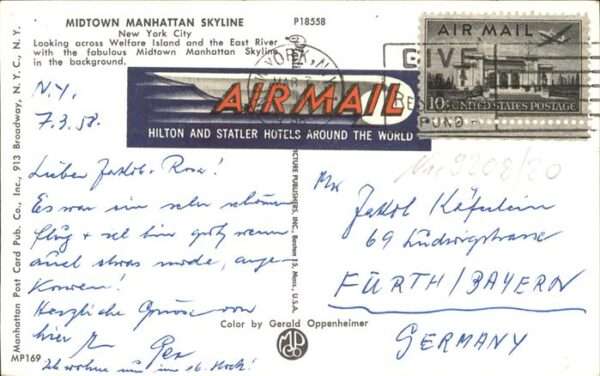 MIDTOWN MANHATTAN SKYLINE
New York City
Looking across Welfare Island and the East River
with the fabulous Midtown Manhattan Skyline
in the background.
P18558
N.Y.
7.3.58.
Lieber Jakob, Rosa!
Es war ein sehr schöner
Flug + ich bin gut, wenn
auch etwas müde, ange-
kommen!
Herzliche Grüsse von
hier
Ich wohne im 16. Stock!
AIR MAIL
HILTON AND STATLER HOTELS AROUND THE WORLD
YORK, N.Y.
MAR
GIVE
FUND
AIR MAIL
10¢ UNITED STATES POSTAGE
Jakob
69 Ludwigstrasse
FÜRTH/BAYERN
GERMANY
Color by Gerald Oppenheimer
Manhattan Post Card Pub. Co., Inc., 913 Broadway, N.Y.C., N.Y.
MP169
PUBLISHERS, INC., Boston 15, Mass., U.S.A.